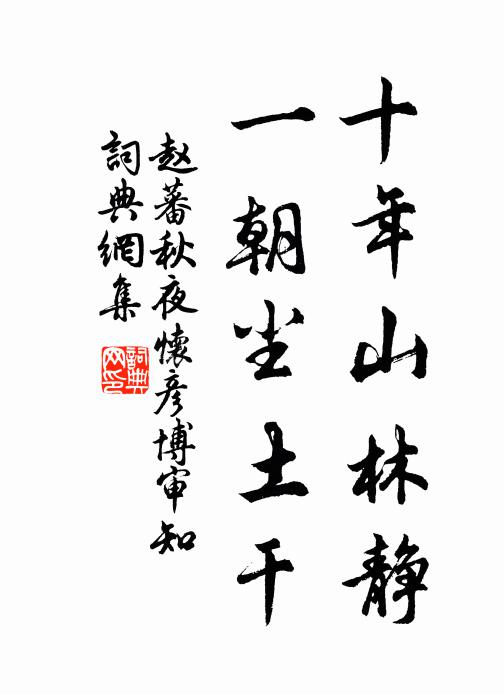 十年山林静
一朝尘土干
赵蕃秋夜懷彦博审知
詞典網集
詞典网印